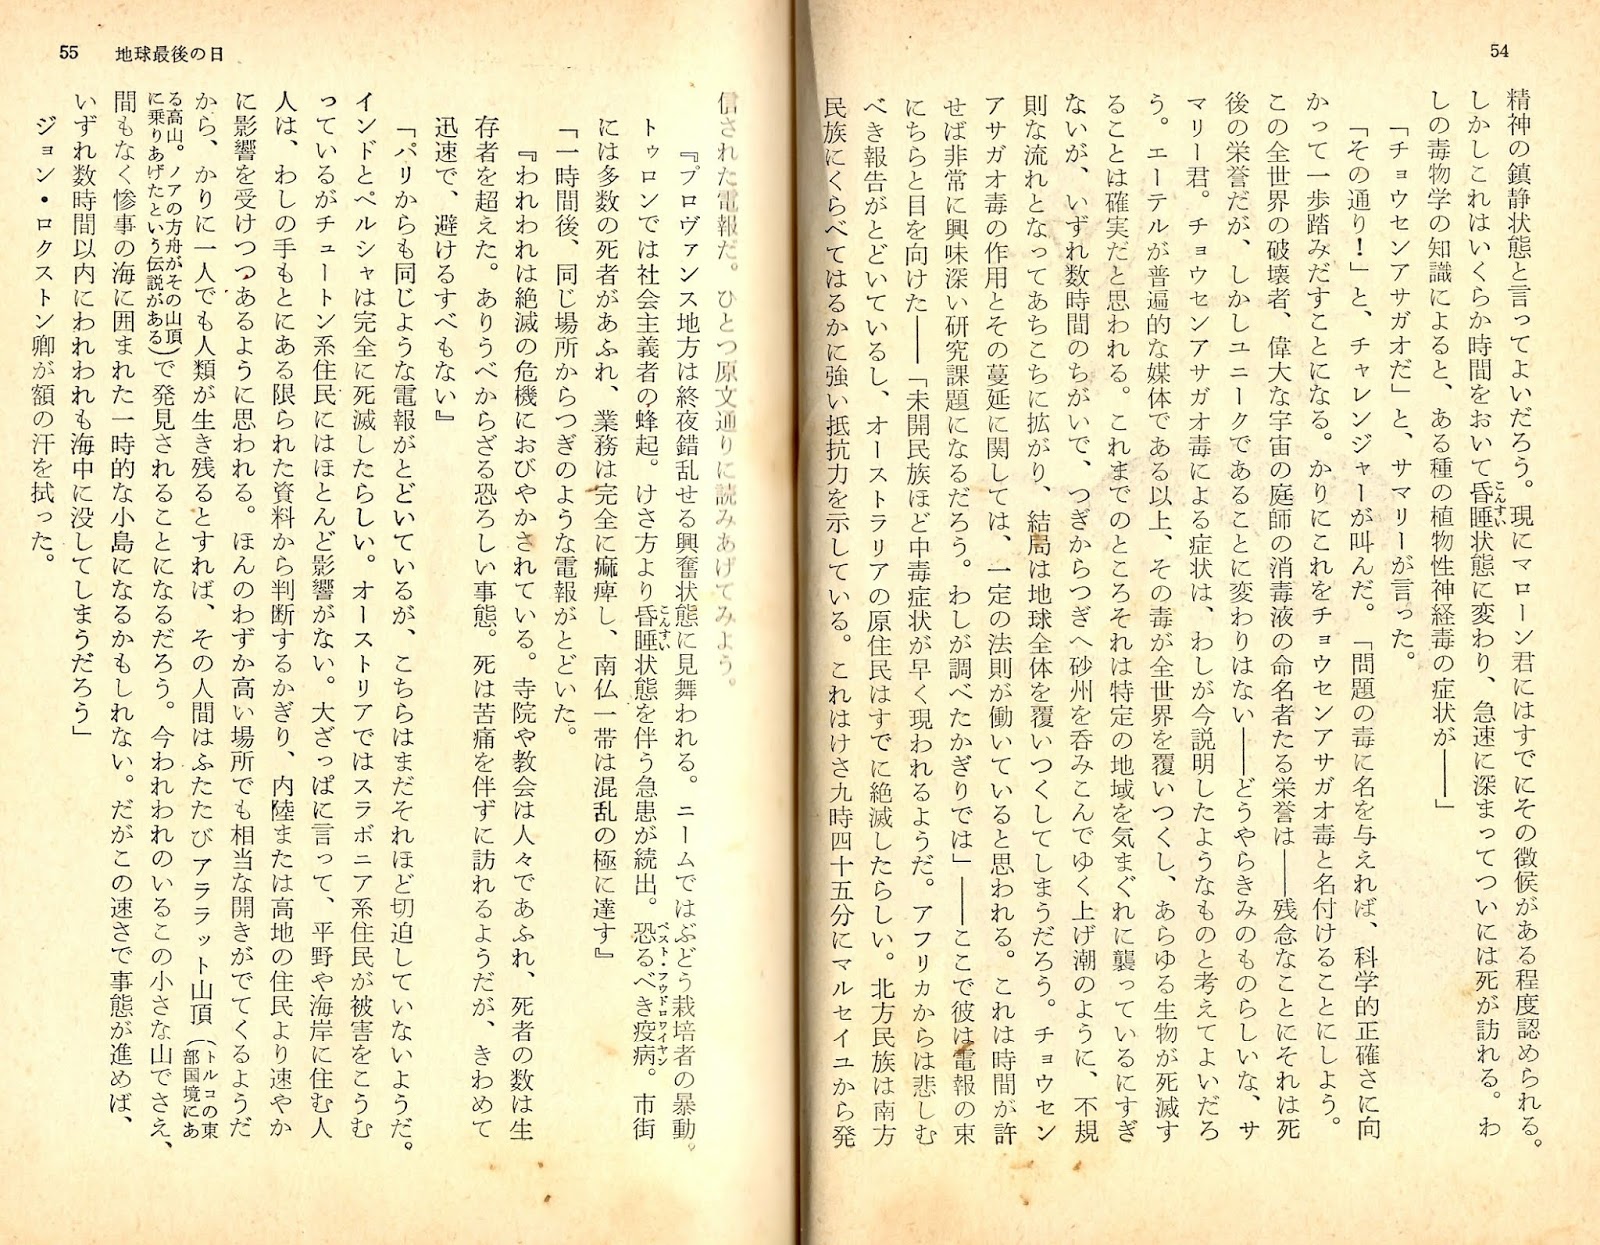 54
精神の鎮静状態と言ってよいだろう。現にマローン君にはすでにその徴候がある程度認められる。
しかしこれはいくらか時間をおいて昏睡状態に変わり、急速に深まってついには死が訪れる。わ
こんすい
しの毒物学の知識によると、ある種の植物性神経毒の症状が――」
「チョウセンアサガオだ」と、サマリーが言った。
「その通り!」と、チャレンジャーが叫んだ。「問題の毒に名を与えれば、科学的正確さに向
かって一歩踏みだすことになる。かりにこれをチョウセンアサガオ毒と名付けることにしよう。
この全世界の破壊者、偉大な宇宙の庭師の消毒液の命名者たる栄誉は――残念なことにそれは死
後の栄誉だが、しかしユニークであることに変わりはない――どうやらきみのものらしいな、サ
マリー君。チョウセンアサガオ毒による症状は、わしが今説明したようなものと考えてよいだろ
う。エーテルが普遍的な媒体である以上、その毒が全世界を覆いつくし、あらゆる生物が死滅す
ることは確実だと思われる。これまでのところそれは特定の地域を気まぐれに襲っているにすぎ
ないが、いずれ数時間のちがいで、つぎからつぎへ砂州を呑みこんでゆく上げ潮のように、不規
則な流れとなってあちこちに拡がり、結局は地球全体を覆いつくしてしまうだろう。チョウセン
アサガオ毒の作用とその蔓延に関しては、一定の法則が働いていると思われる。これは時間が許
せば非常に興味深い研究課題になるだろう。わしが調べたかぎりでは」――ここで彼は電報の束
にちらと目を向けた――「未開民族ほど中毒症状が早く現われるようだ。アフリカからは悲しむ
べき報告がとどいているし、オーストラリアの原住民はすでに絶滅したらしい。北方民族は南方
民族にくらべてはるかに強い抵抗力を示している。これはけさ九時四十五分にマルセイユから発
55 地球最後の日
信された電報だ。ひとつ原文通りに読みあげてみよう。
『プロヴァンス地方は終夜錯乱せる興奮状態に見舞われる。ニームではぶどう栽培者の暴動。
トゥロンでは社会主義者の蜂起。けさ方より昏睡状態を伴う急患が続出。恐るべき疫病。市街
こんすい
ペスト・フウドロワイヤン
には多数の死者があふれ、業務は完全に痲痺し、南仏一帯は混乱の極に達す』
「一時間後、同じ場所からつぎのような電報がとどいた。
『われわれは絶滅の危機におびやかされている。寺院や教会は人々であふれ、死者の数は生
存者を超えた。ありうべからざる恐ろしい事態。死は苦痛を伴ずに訪れるようだが、きわめて
迅速で、避けるすべもない』
「パリからも同じような電報がとどいているが、こちらはまだそれほど切迫していないようだ。
インドとペルシャは完全に死滅したらしい。オーストリアではスラボニア系住民が被害をこうむ
っているがチュートン系住民にはほとんど影響がない。大ざっぱに言って、平野や海岸に住む人
人は、わしの手もとにある限られた資料から判断するかぎり、内陸または高地の住民より速やか
に影響を受けつつあるように思われる。ほんのわずか高い場所でも相当な開きがでてくるようだ
から、かりに一人でも人類が生き残るとすれば、その人間はふたたびアララット山頂(トルコの東
部国境にあ
る高山。ノアの方舟がその山頂
に乗りあげたという伝説がある)で発見されることになるだろう。今われわれのいるこの小さな山でさえ、
間もなく惨事の海に囲まれた一時的な小島になるかもしれない。だがこの速さで事態が進めば、
いずれ数時間以内にわれわれも海中に没してしまうだろう」
ジョン・ロクストン卿が額の汗を拭った。